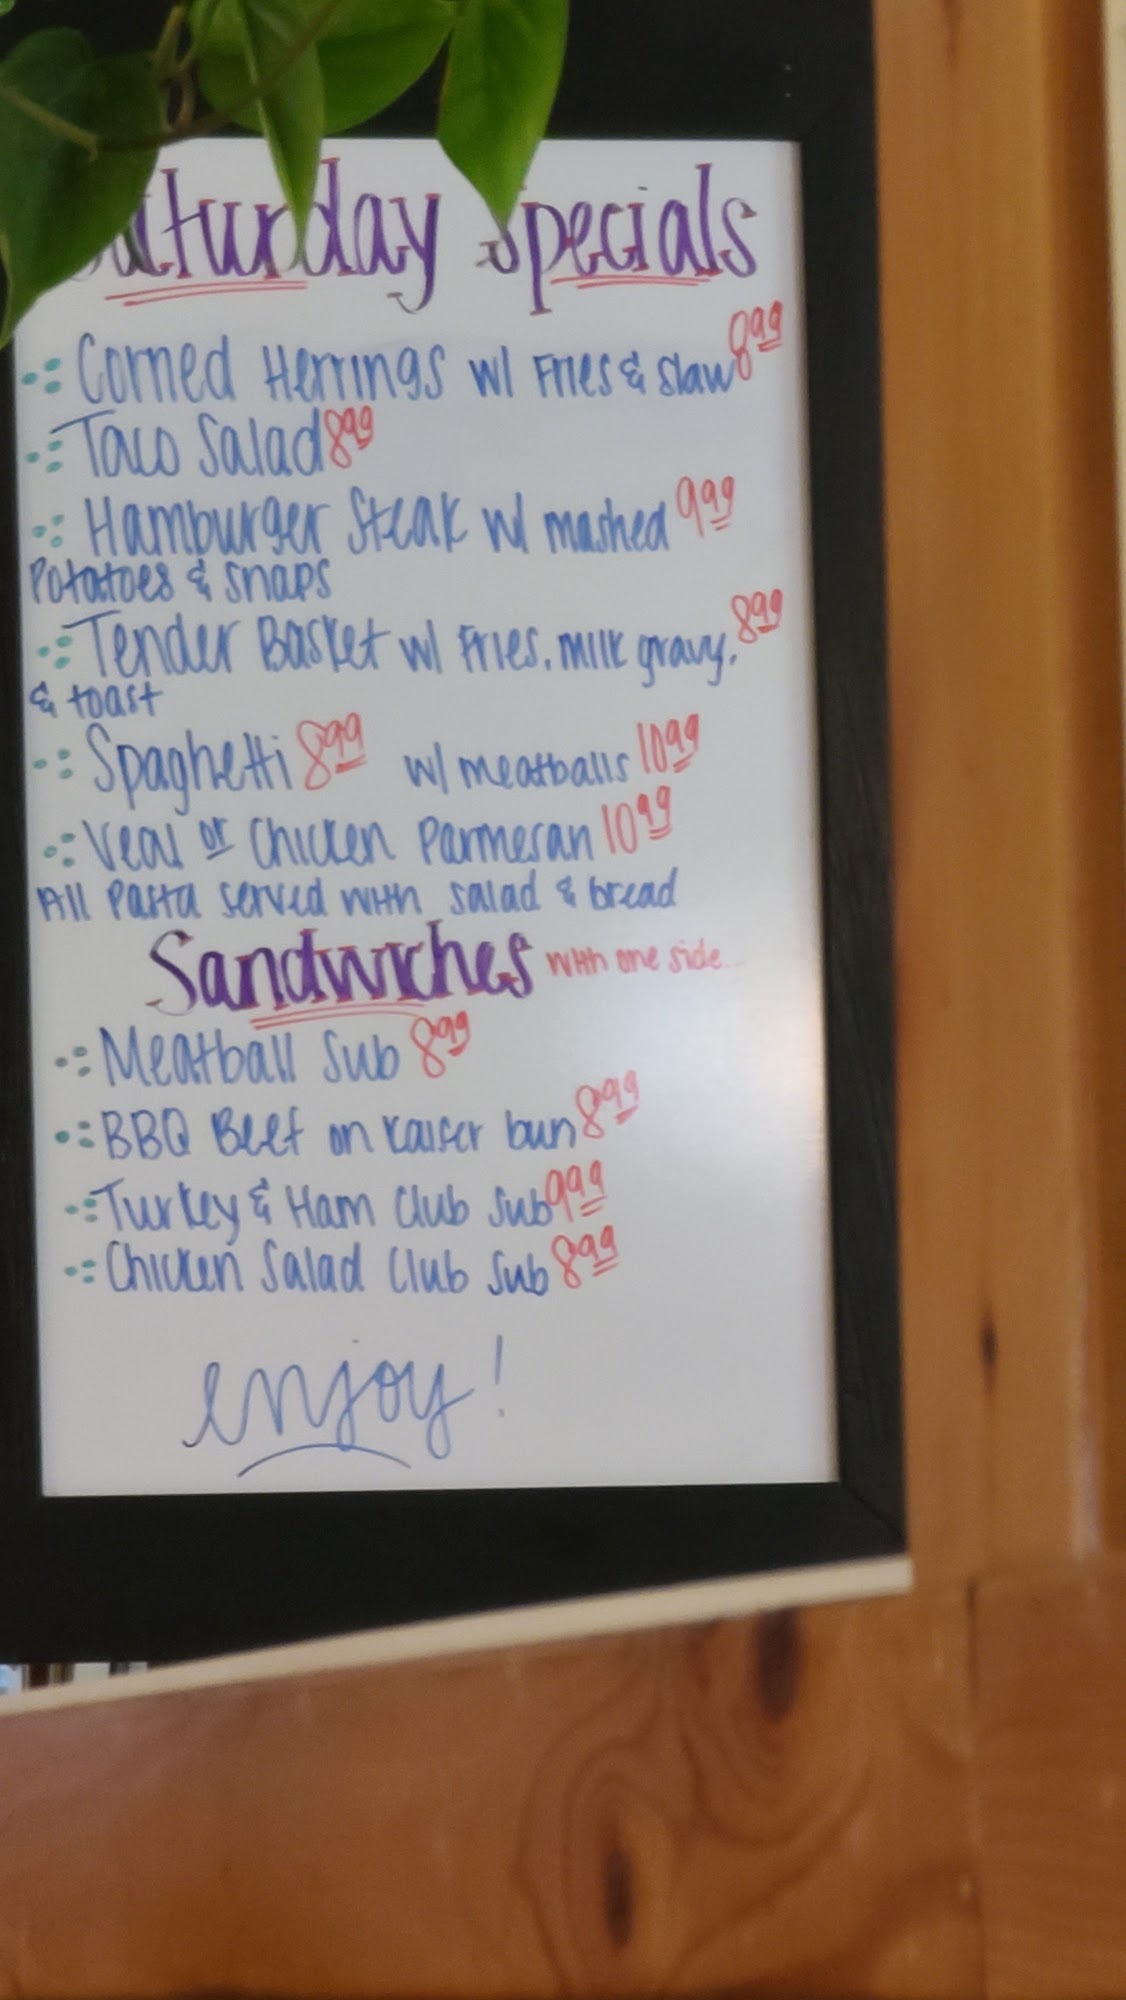 Saturday Specials
Corned Herrings w/ Fries & Slaw 8.99
Taco Salad 8.99
Hamburger Steak w/ mashed 9.99
Potatoes & snaps
Tender Basket w/ Fries, milk gravy, 8.99
& toast
Spaghetti 8.99 w/ meatballs 10.99
Veal or Chicken Parmesan 10.99
All Pasta served with salad & bread
Sandwiches with one side...
Meatball Sub 8.99
BBQ Beef on Kaiser bun 8.99
Turkey & Ham Club Sub 9.99
Chicken Salad Club Sub 8.99
enjoy!